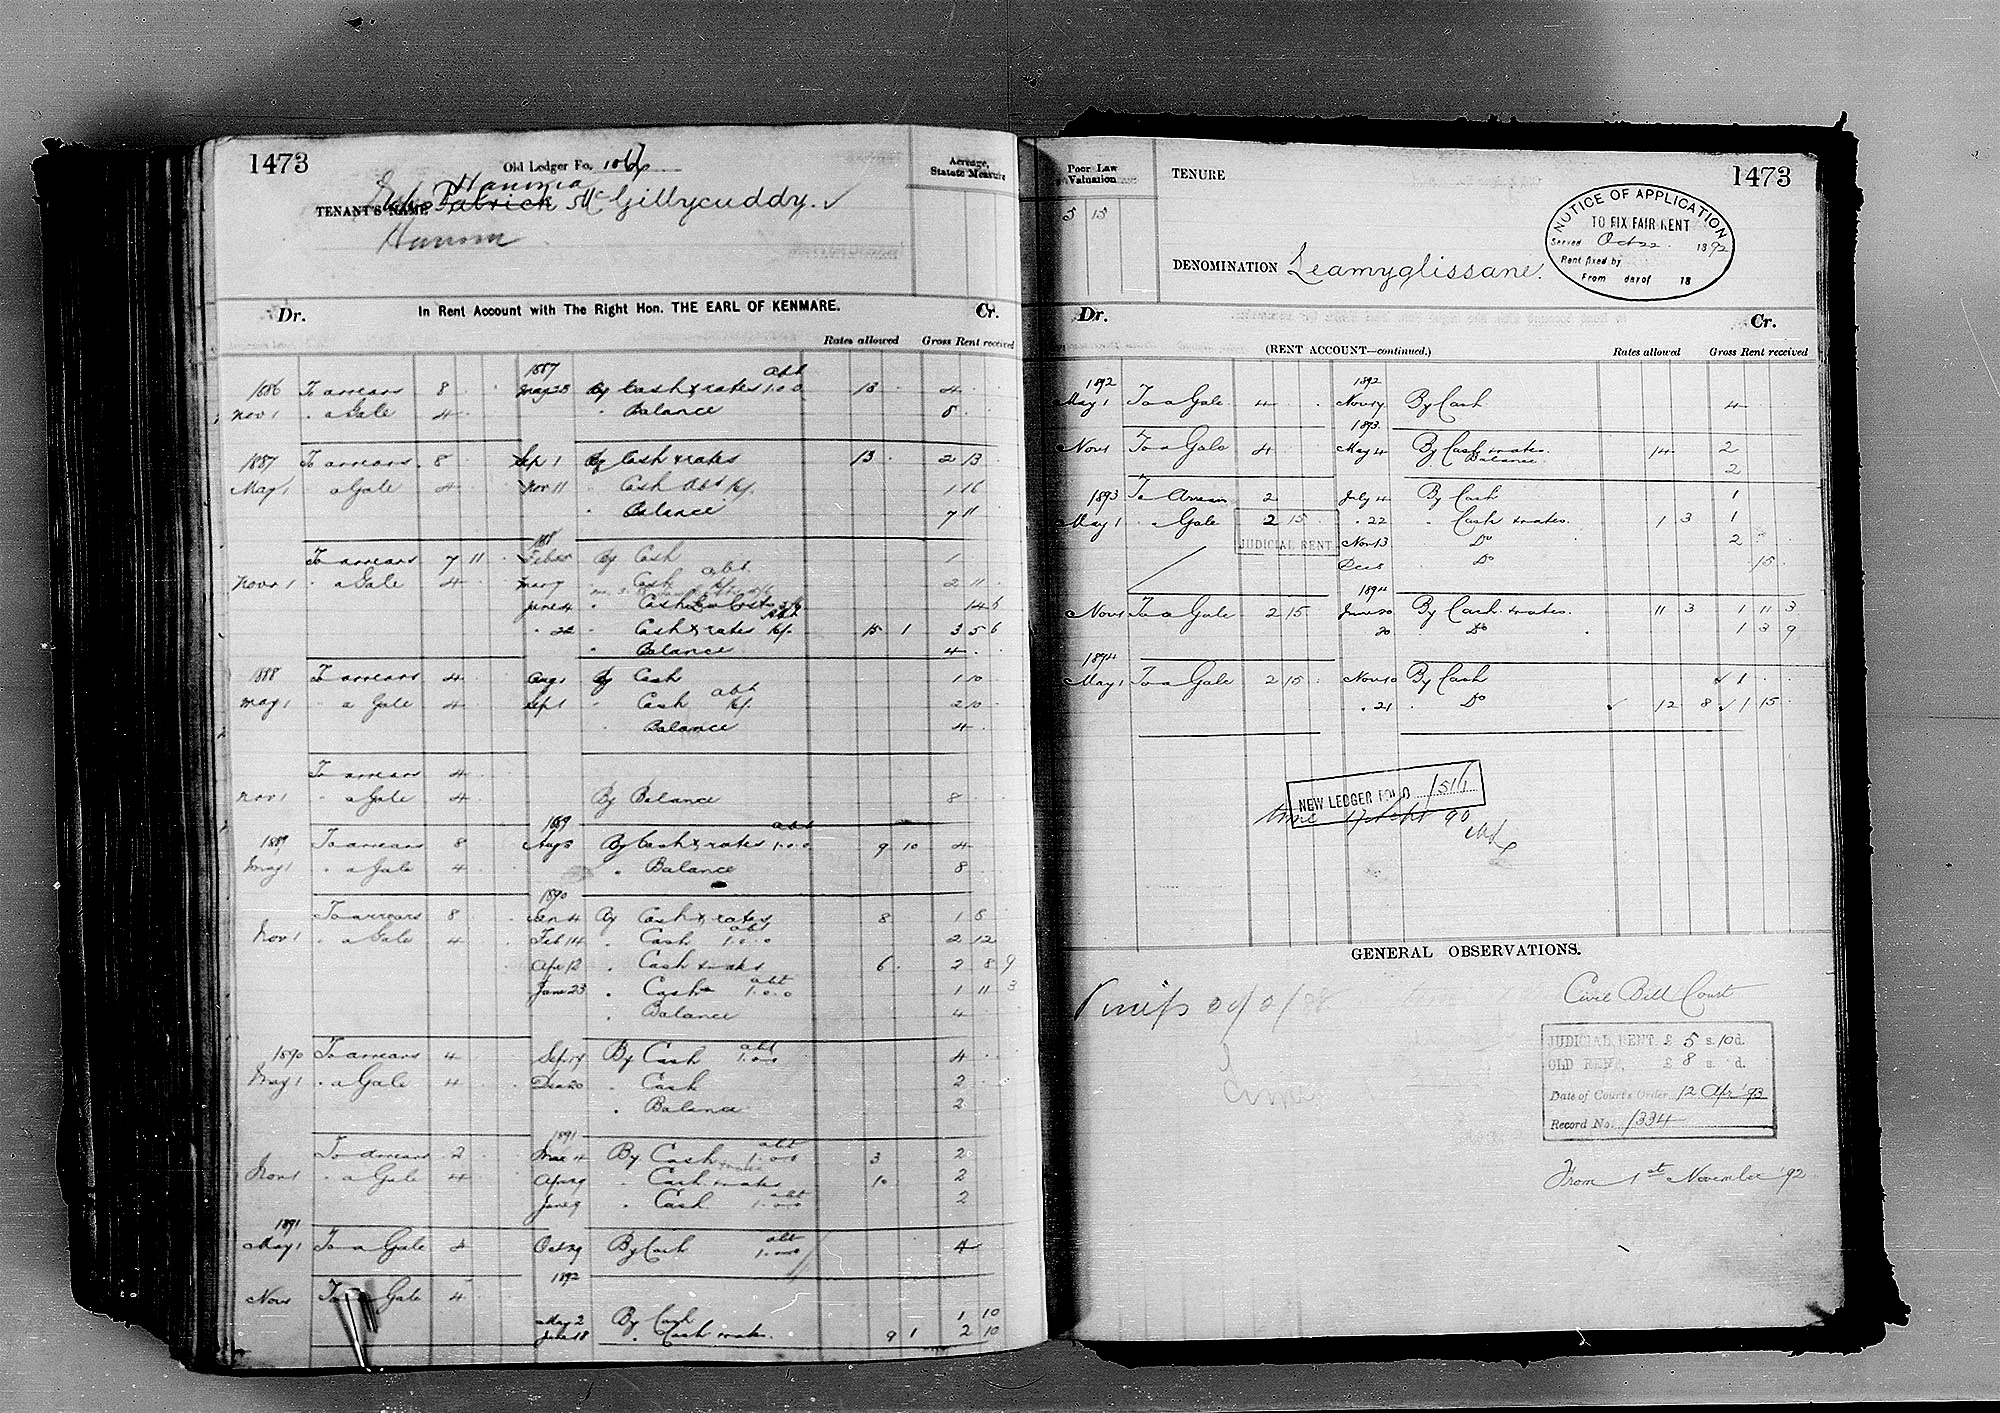 1473
Old Ledger Fo. 1067
Hannia
TENANT'S NAME Patrick McGillycuddy.
Acreage, Statute Measure
In Rent Account with The Right Hon. THE EARL OF KENMARE.
Dr. Cr.
Rates allowed Gross Rent received
1887 abt
1886 To arrears 8 May 28 By Cash & rates 1.0.0 13 4
Nov 1 " a Gale 4 " Balance 8
1887 To arrears 8 Sep 1 By Cash & rates 13 2 13
May 1 a Gale 4 Nov 11 " Cash Abt 1 16
" Balance 7 11
188
To arrears 7 11 Feb By Cash 1
Novr 1 " a Gale 4 Cash abt 2 11
June 4 " Cash 14 6
" 22 " Cash & rates Abt 15 1 3 5 6
" Balance 4
1888 To arrears 4 Aug 1 By Cash 1 10
May 1 " a Gale 4 Sept 1 " Cash abt 2 10
Balance 4
To arrears 4
Nov 1 " a Gale 4 By Balance 8
1889 abt
1889 To arrears 8 Aug 5 By Cash & rates 1.0.0 9 10 4
May 1 " a Gale 4 " Balance 8
1890
To arrears 8 Jan 4 By Cash & rates 8 1 8
Nov 1 " a Gale 4 Feb 14 " Cash abt 1.0.0 2 12
Apr 12 " Cash & rates 6 2 8 9
June 23 " Cash abt 1.0.0 1 11 3
" Balance 4
1890 To arrears 4 Sep 17 By Cash abt 1.0.0 4
May 1 " a Gale 4 Dec 20 " Cash 2
" Balance 2
1891
To arrears 2 Mar 4 By Cash abt 1.0.0 3 2
Nov 1 " a Gale 4 Apr 9 " Cash & rates 10 2
June 9 " Cash abt 1.0.0 2
1891
May 1 To a Gale 4 Oct 29 By Cash abt 1.0.0 4
1892
Nov 1 To a Gale 4
May 2 By Cash 1 10
" Cash & rates. 9 1 2 10
Poor Law Valuation
5 15
TENURE
1473
NOTICE OF APPLICATION
TO FIX FAIR RENT
Served Oct 22 1892
Rent fixed by
From day of 18
DENOMINATION Leamyglissane.
Dr. Cr.
(RENT ACCOUNT—continued.) Rates allowed Gross Rent received
1892 1892
May 1 To a Gale 4 Nov 17 By Cash 4
1893
Nov 1 To a Gale 4 May 4 By Cash & rates. 14 2
Balance 2
1893 To Arrears 2 July 4 By Cash 1
May 1 " Gale 2 15 " 22 " Cash & rates. 1 3 1
JUDICIAL RENT Nov 13 Do 2
Dec 8 " Do 15
1894
Nov 1 To a Gale 2 15 June 20 By Cash & rates. 11 3 1 11 3
20 " Do 1 3 9
1894
May 1 To a Gale 2 15 Nov 10 By Cash 1
" 21 " Do 12 8 1 15
NEW LEDGER FOLIO 1516
GENERAL OBSERVATIONS.
Civil Bill Court
JUDICIAL RENT, £ 5 s. 10 d.
OLD RENT, £ 8 s. d.
Date of Court's Order 12 Apr '93
Record No. 1334
From 1st November '92